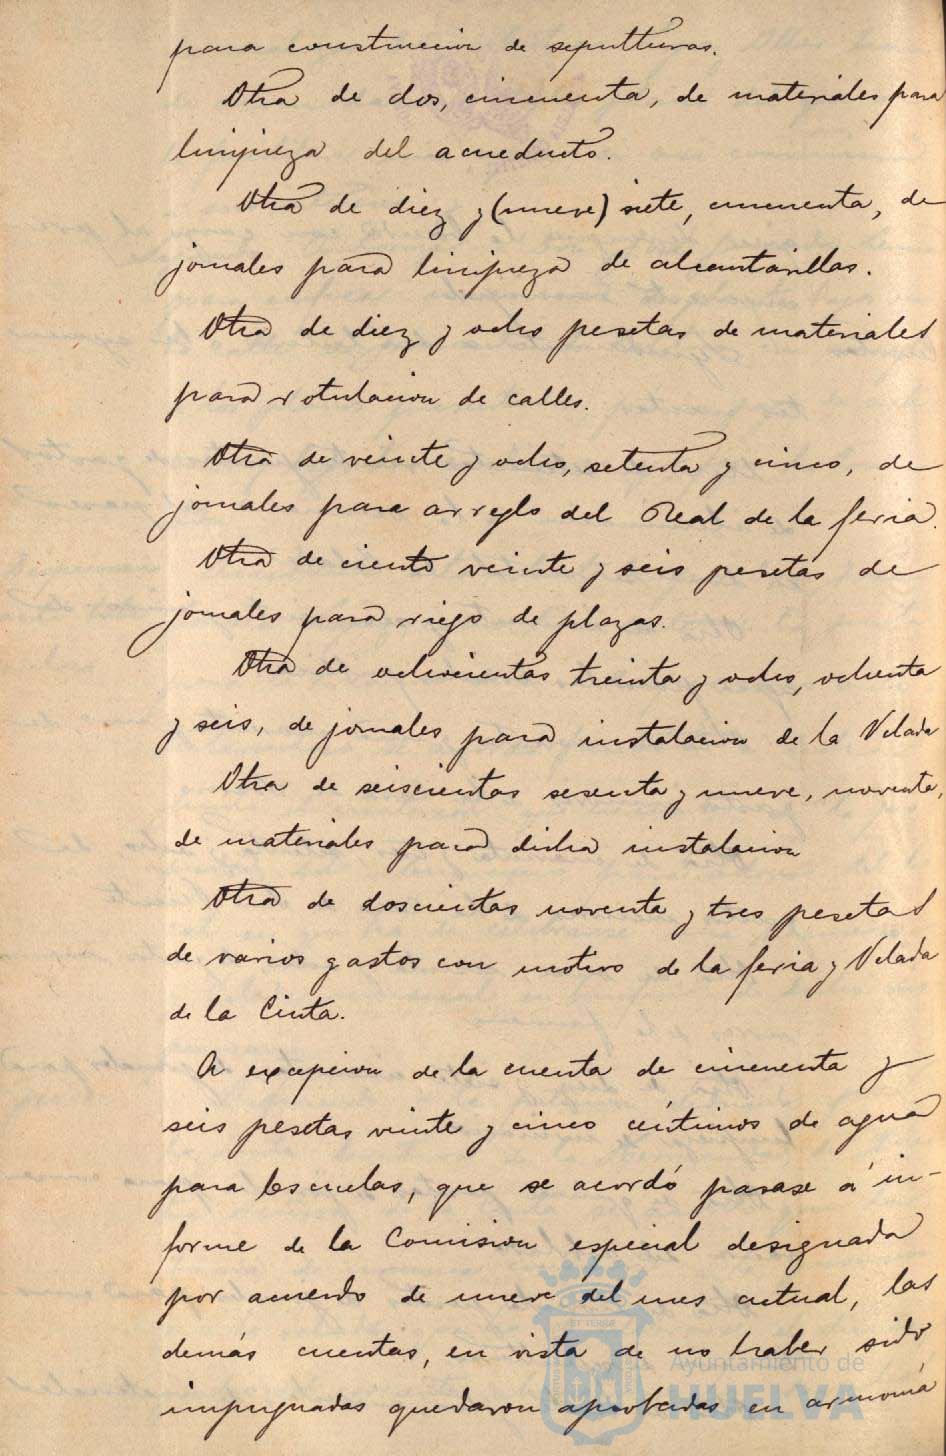 para construccion de sepulturas.
Otra de dos, cincuenta, de materiales para
limpieza del acueducto.
Otra de diez y (nueve) siete, cincuenta, de
jornales para limpieza de alcantarillas.
Otra de diez y ocho pesetas de materiales
para rotulacion de calles.
Otra de veinte y ocho, setenta y cinco, de
jornales para arreglo del Real de la feria.
Otra de ciento veinte y seis pesetas de
jornales para riego de plazas.
Otra de ochocientas treinta y ocho, ochenta
y seis, de jornales para instalacion de la Velada
Otra de seiscientas sesenta y nueve, noventa,
de materiales para dicha instalacion
Otra de doscientas noventa y tres pesetas
de varios gastos con motivo de la feria y Velada
de la Cinta.
A excepcion de la cuenta de cincuenta y
seis pesetas veinte y cinco céntimos de agua
para Escuelas, que se acordó pasase á in-
forme de la Comision especial designada
por acuerdo de nueve del mes actual, las
demás cuentas, en vista de no haber sido
impugnadas quedaron aprobadas en armonía
Ayuntamiento de
HUELVA